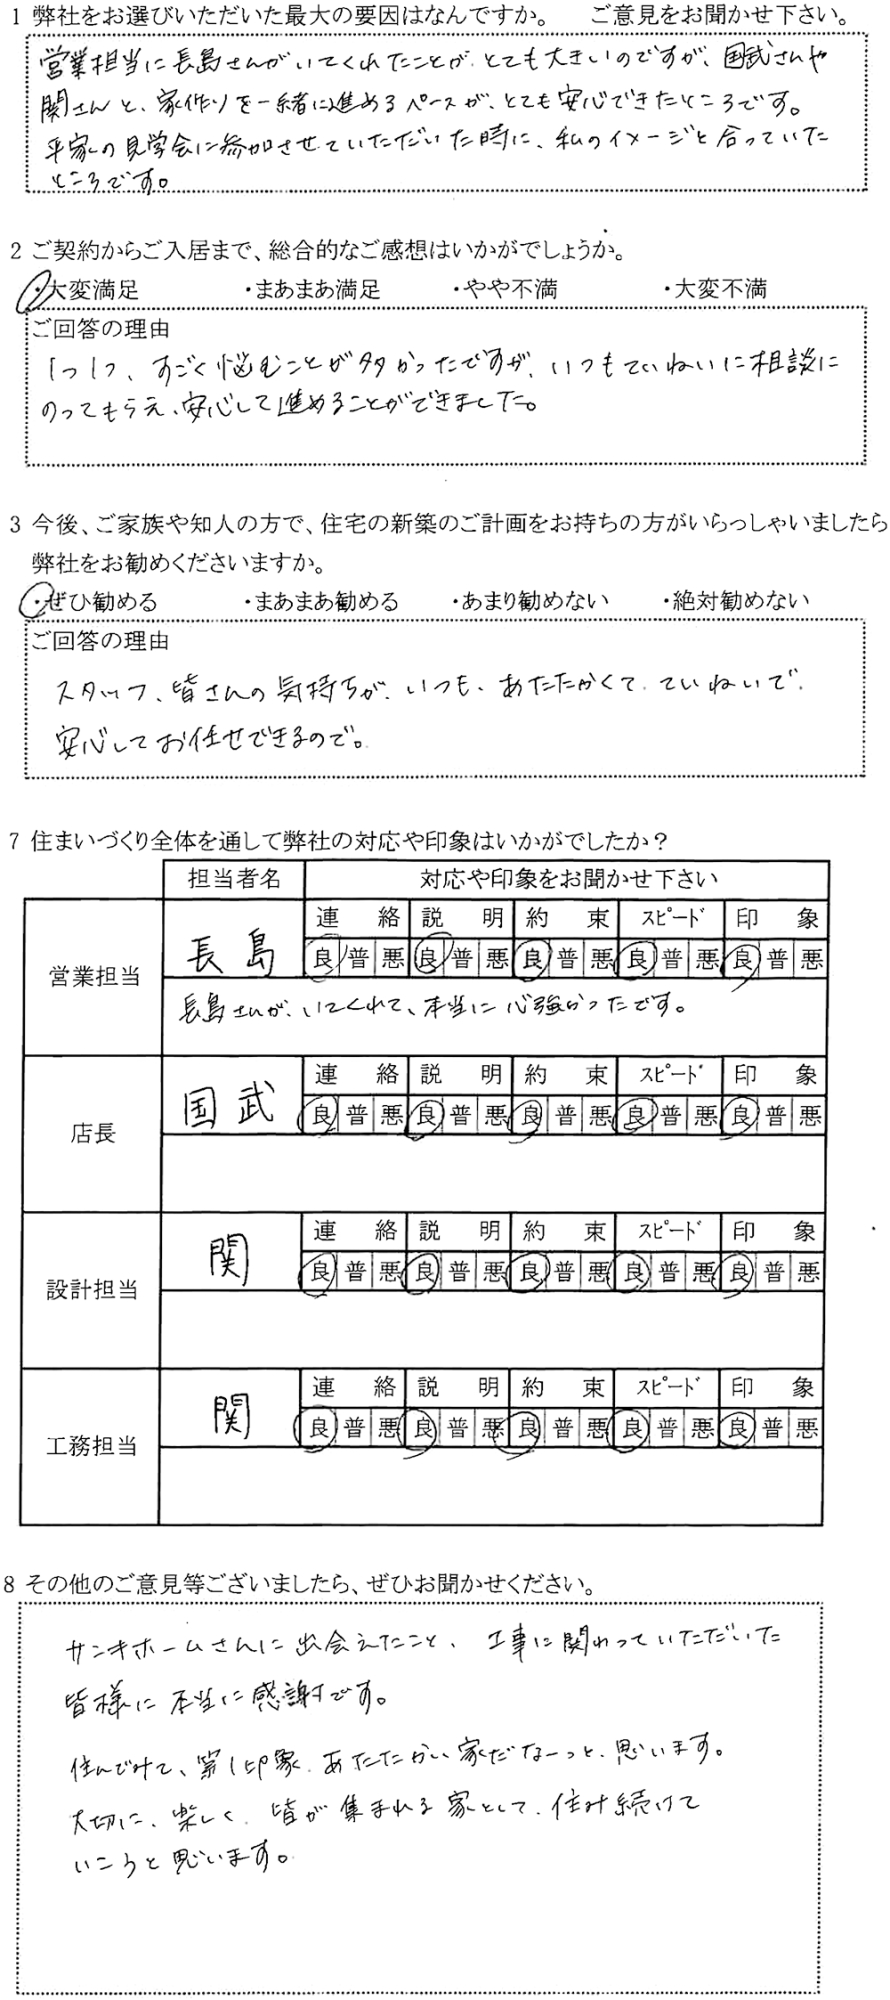 1 弊社をお選びいただいた最大の要因はなんですか。　ご意見をお聞かせ下さい。
営業担当に長島さんがいてくれたことが、とても大きいのですが、国武さんや
関さんと、家作りを一緒に進めるペースが、とても安心できたところです。
平家の見学会に参加させていただいた時に、私のイメージと合っていた
ところです。
2 ご契約からご入居まで、総合的なご感想はいかがでしょうか。
・大変満足　・まあまあ満足　・やや不満　・大変不満
ご回答の理由
1つ1つ、すごく悩むことが多かったですが、いつもていねいに相談に
のってもらえ、安心して進めることができました。
3 今後、ご家族や知人の方で、住宅の新築のご計画をお持ちの方がいらっしゃいましたら
弊社をお勧めくださいますか。
・ぜひ勧める　・まあまあ勧める　・あまり勧めない　・絶対勧めない
ご回答の理由
スタッフ、皆さんの気持ちが、いつも、あたたかくて、ていねいで、
安心してお任せできるので。
7 住まいづくり全体を通して弊社の対応や印象はいかがでしたか？
担当者名　対応や印象をお聞かせ下さい
営業担当　長島　連絡　説明　約束　スピード　印象
良 普 悪 良 普 悪 良 普 悪 良 普 悪 良 普 悪
長島さんが、いてくれて、本当に心強かったです。
店長　国武　連絡　説明　約束　スピード　印象
良 普 悪 良 普 悪 良 普 悪 良 普 悪 良 普 悪
設計担当　関　連絡　説明　約束　スピード　印象
良 普 悪 良 普 悪 良 普 悪 良 普 悪 良 普 悪
工務担当　関　連絡　説明　約束　スピード　印象
良 普 悪 良 普 悪 良 普 悪 良 普 悪 良 普 悪
8 その他のご意見等ございましたら、ぜひお聞かせください。
サンキホームさんに出会えたこと、工事に関わっていただいた
皆様に本当に感謝です。
住んでみて、第1印象、あたたかい家だなーっと、思います。
大切に、楽しく、皆が集まれる家として、住み続けて
いこうと思います。